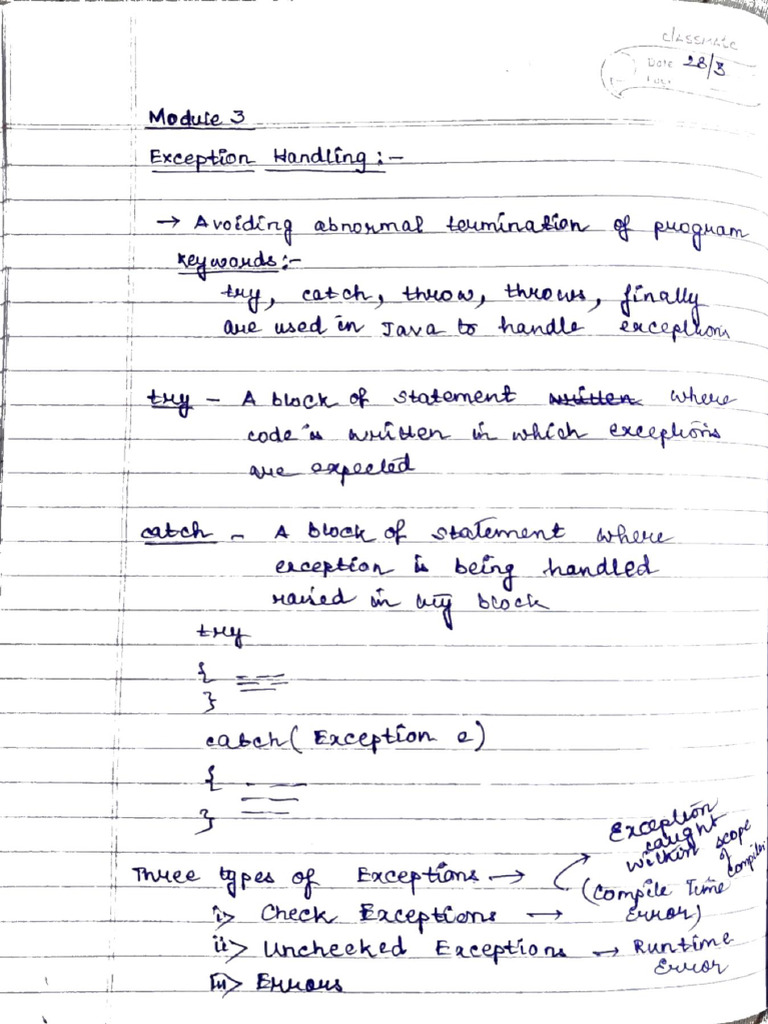 classmate
Date 28/3
Page
Module 3
Exception Handling :-
→ Avoiding abnormal termination of program
Keywords:-
try, catch, throw, throws, finally
are used in Java to handle exceptions
try - A block of statement written where
code is written in which exceptions
are expected
catch - A block of statement where
exception is being handled
raised in try block
try
{
}
catch( Exception e)
{
}
Exception
caught
within scope
of
compiler
Three types of Exceptions →
(Compile Time
i> Check Exceptions →
Error)
ii> Unchecked Exceptions → Runtime
Error
iii> Errors